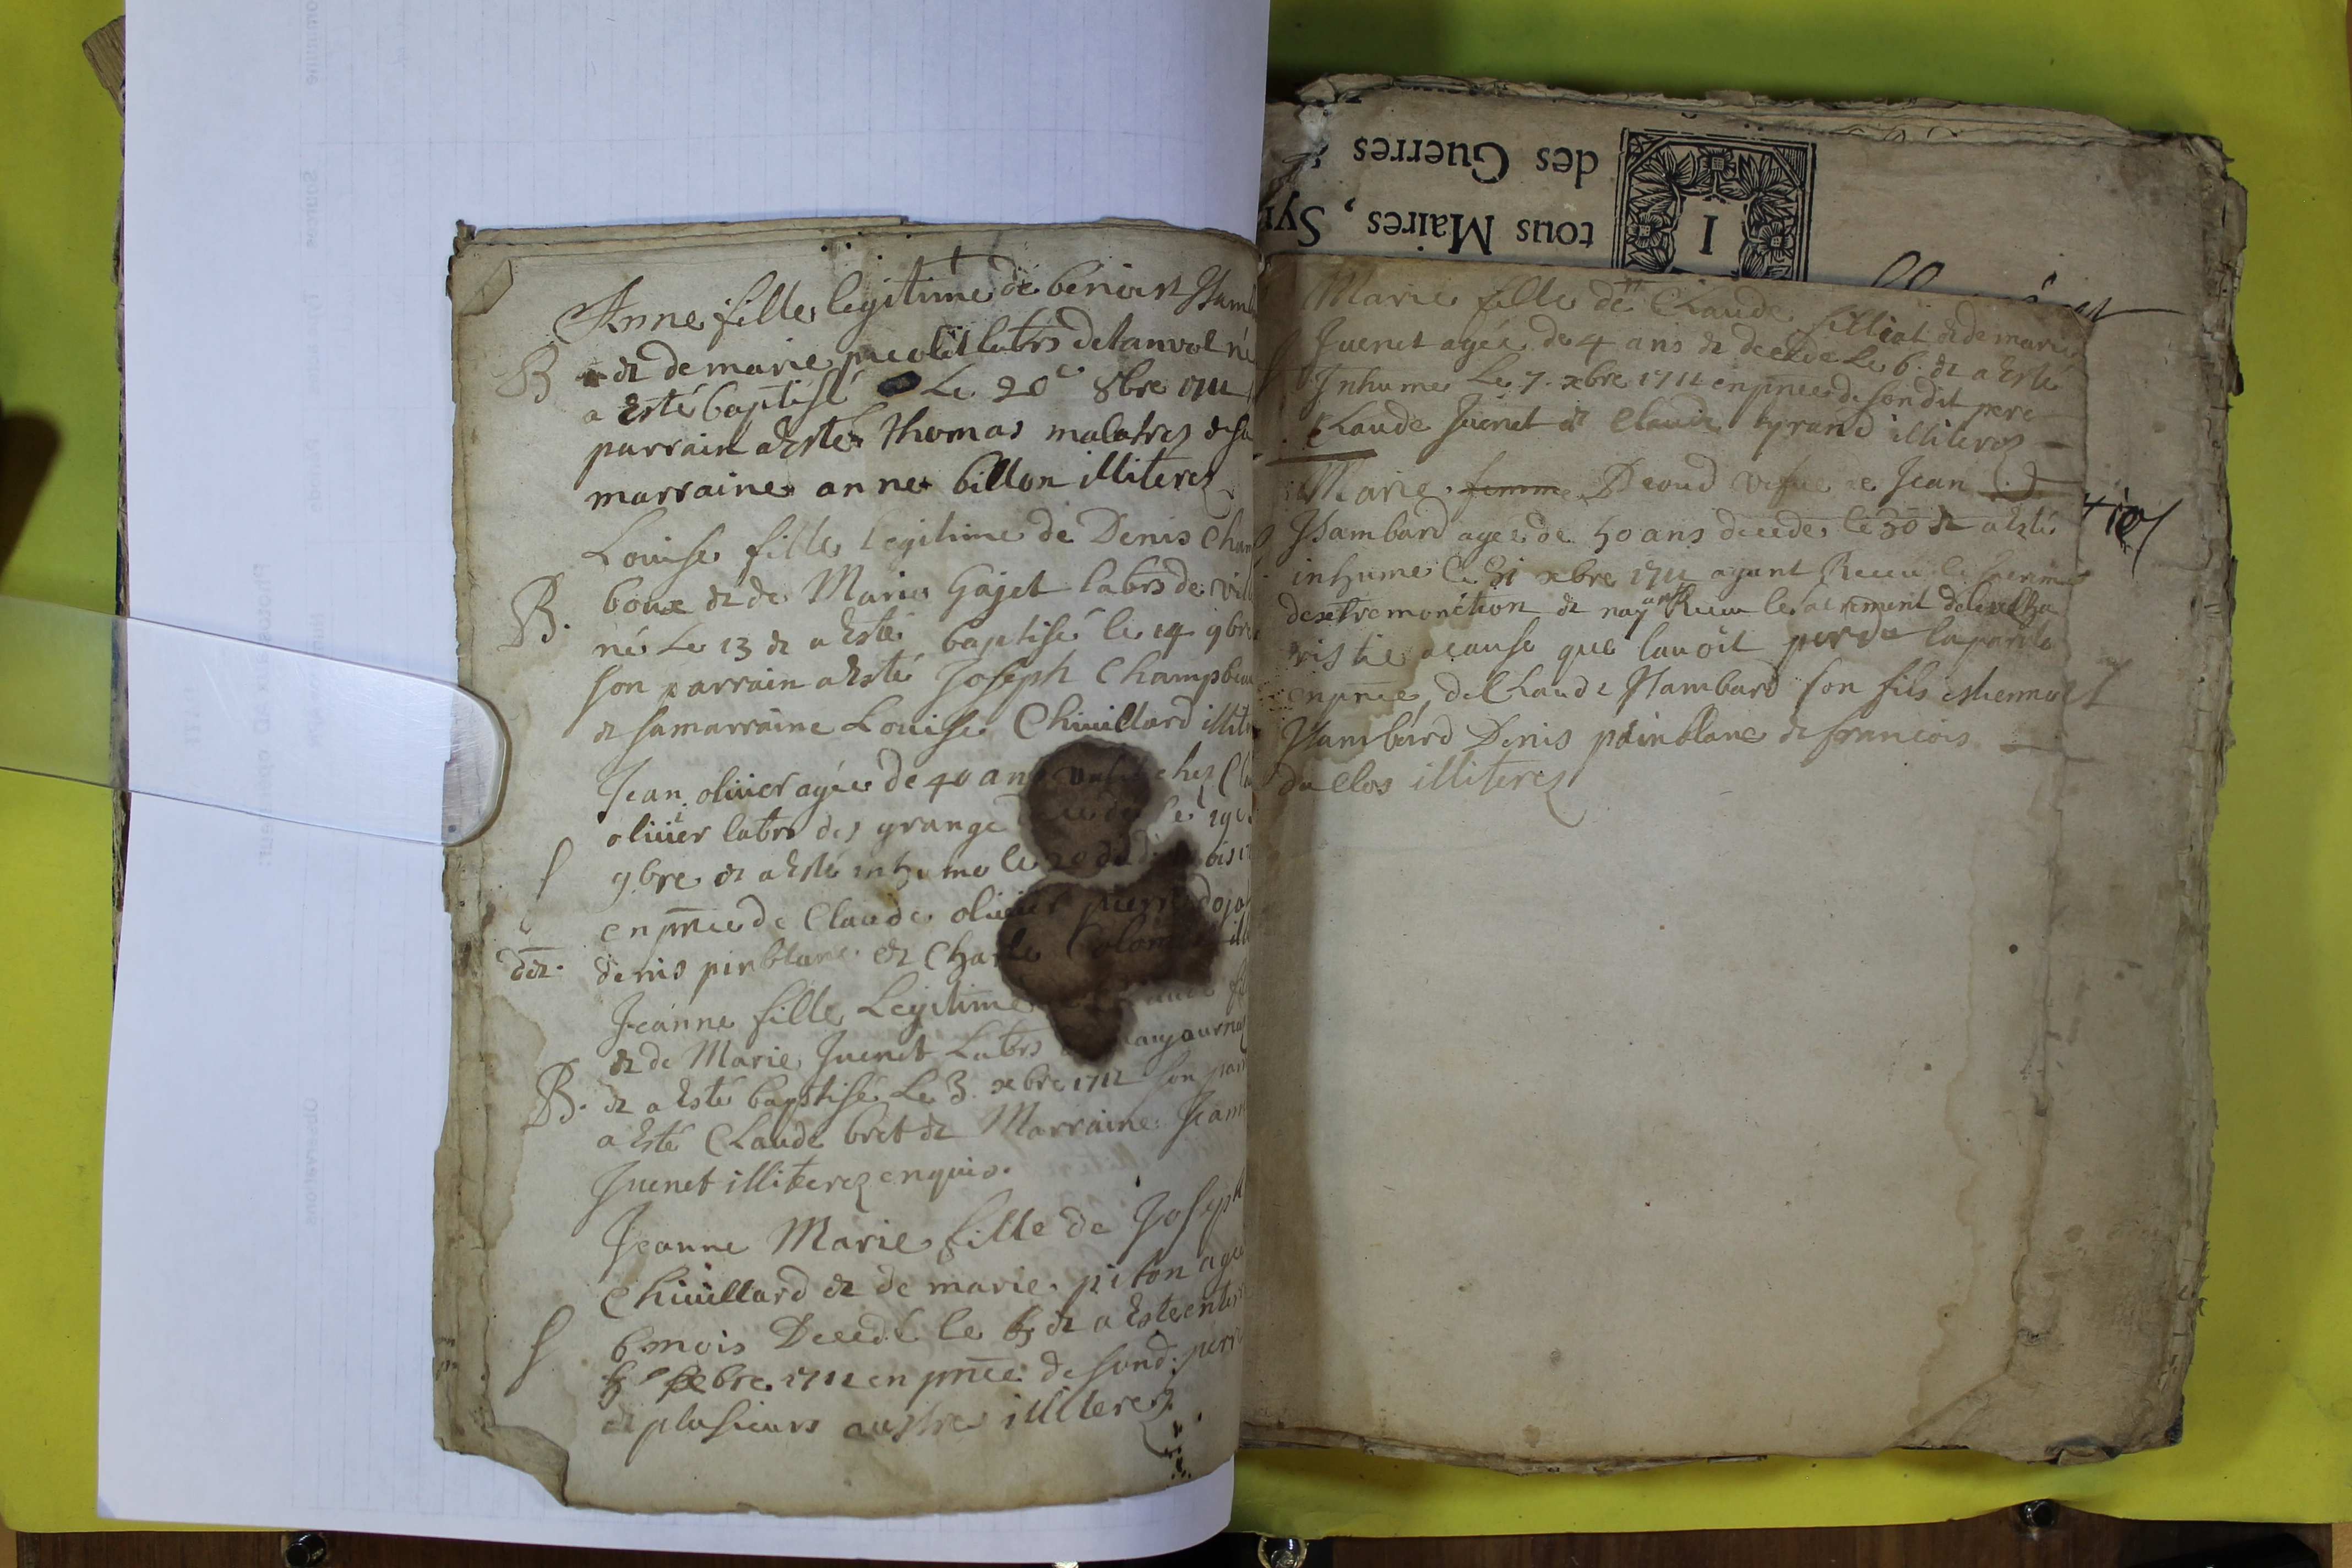 Anne fille legitime de benoist
B
& de marie labrs de lanvol né
a esté baptisé Le 20e 8bre 1712
parrain a esté thomas malatrez & sa
marraine anne billon illiterez
Louise fille legitime de Denis Cham
B.
boux & de Marie Gajet labrs de vil
né Le 13 & a esté baptisé le 14 9bre
son parrain a esté Joseph Champbou
& sa marraine Louise Chivillard illite
Jean olivier agée de 40 ans chez Cla
olivier labrs des grange le 19e
S
9bre & a esté inhumé le 20
en pnce de Claude olivier pierre
dez.
denis pinblanc & Charle Colom ill
Jeanne fille Legitime
& de Marie Juenet Labrs
B.
& a esté baptisé Le 3. xbre 1712 son par
a esté Claude bret & Marraine Jeann
Juenet illiterez enquis.
Jeanne Marie fille de Joseph
Chivillard & de marie piton agee
S
6 mois Decedé le & a esté enter
xbre 1712 en pnce de sond: perre
& plusieurs austre illiterez
des Guerres
tous Maires, Sy
I
Marie fille de Claude filliat & de marie
Juenet agée de 4 ans & decede Le 6. & a esté
Inhume Le 7. xbre 1712 en pnce de son dit pere
Claude Juenet & Claude tyrand illiterez
Marie femme Deoud vefue de Jean
Jsambard agee de 50 ans decede le 30 & a esté
inhume le 31 xbre 1712 ayant Receu le
dextremonction & nayant Receu le sacrement de leucha
ristie acause que lavoit perdu la parole
en pnce de Claude Jsambard son fils estienne
Jsambard Denis painblanc & francois
du clos illiterez